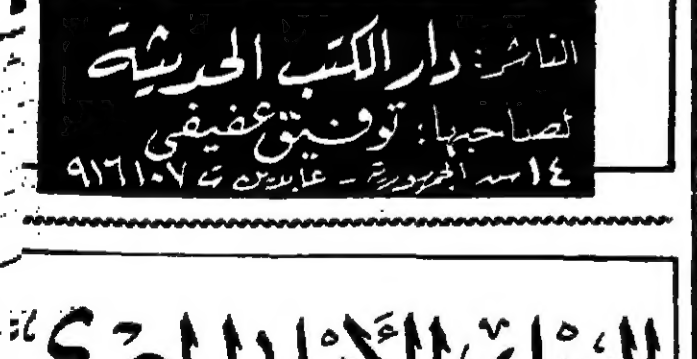 الناشر: دار الكتب الحديثة
لصاحبها: توفيق عفيفى
١٤ ش الجمهورية - عابدين ت ٩١٦١٠٧